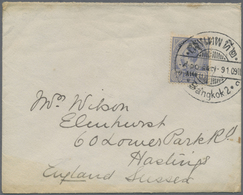 Bangkok 2
Mrs Wilson
Elmhurst
60 Lower Park Rd
Hastings
England Sussex